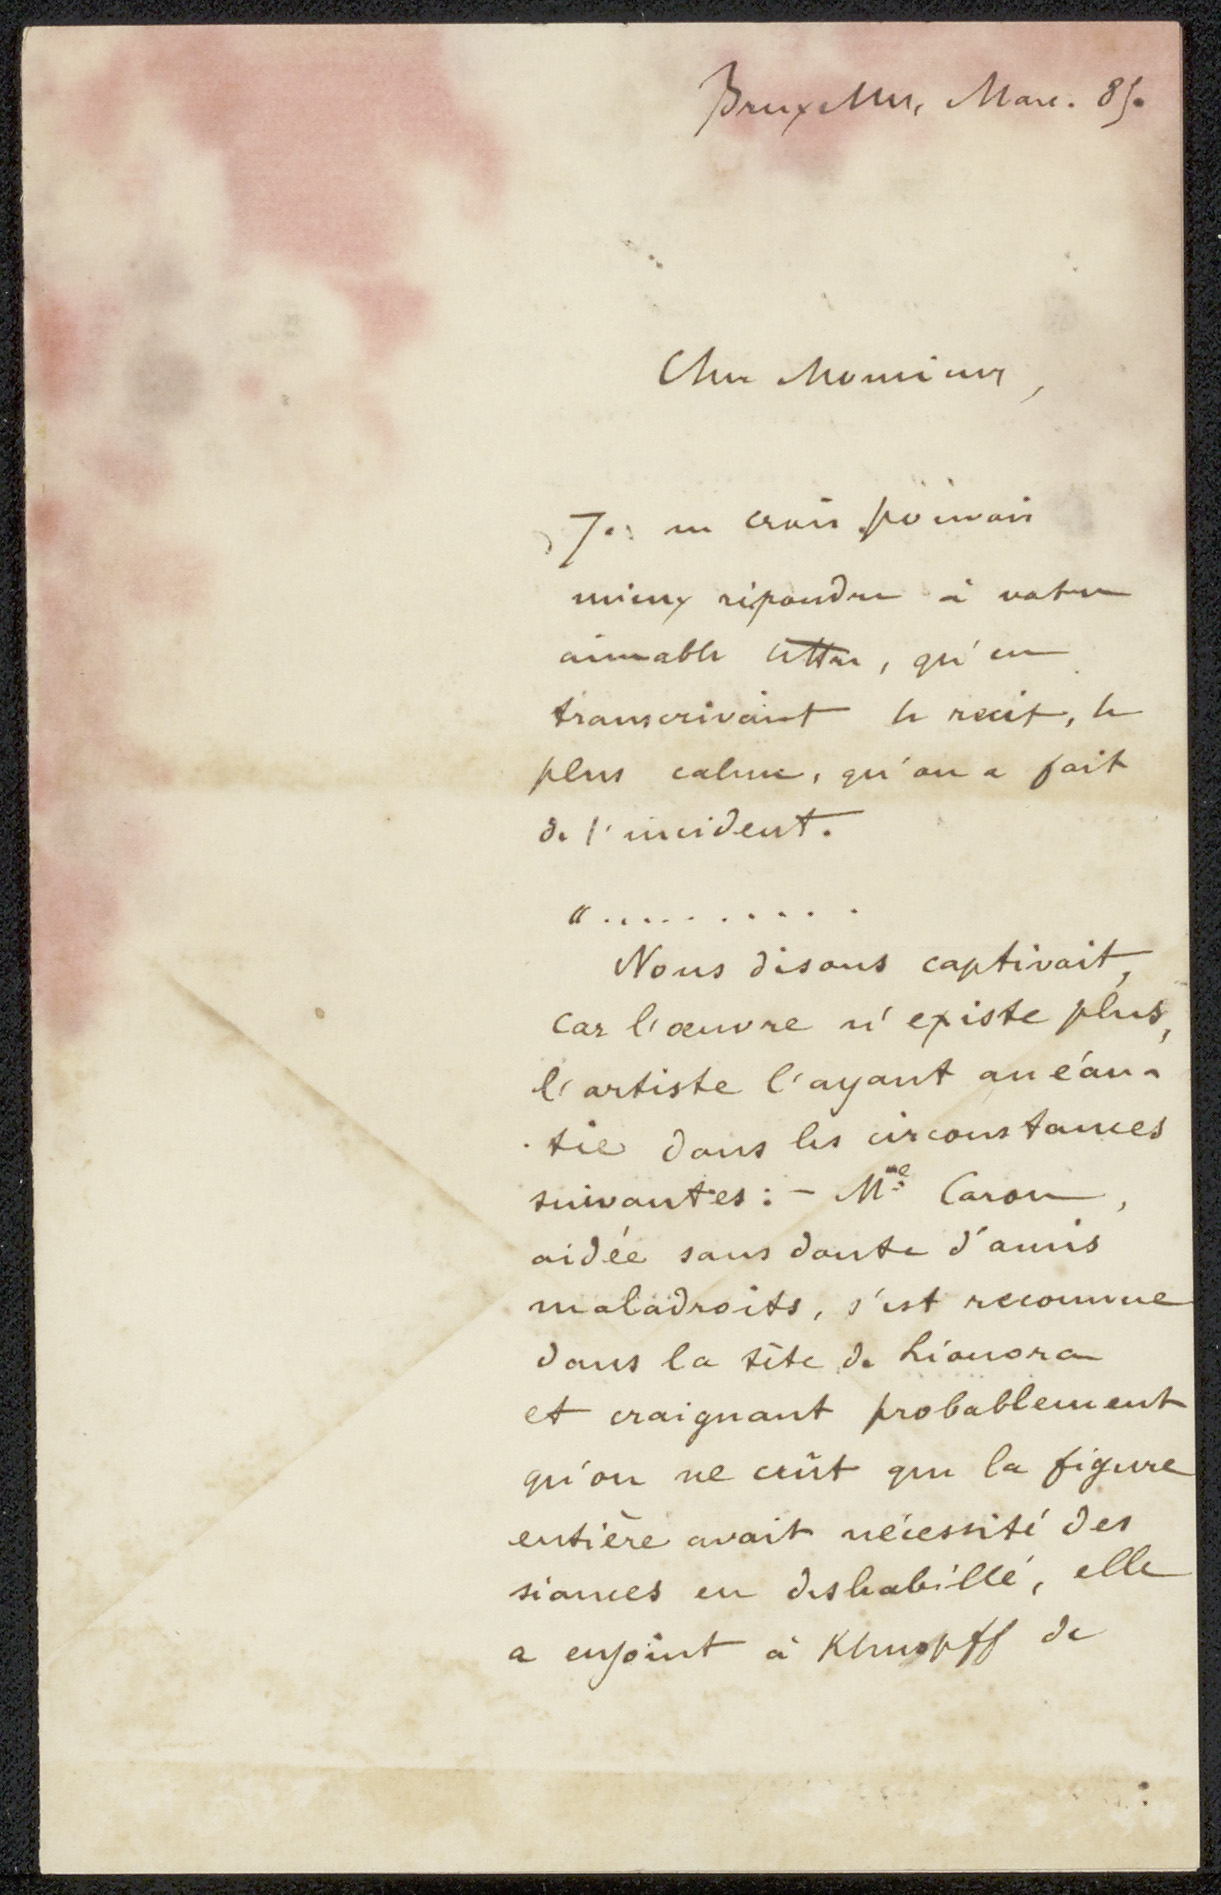 Bruxelles, Mars. 85.
Cher Monsieur,
Je ne crois pouvoir
mieux répondre à votre
aimable lettre, qu'en
transcrivant le récit, le
plus calme, qu'on a fait
de l'incident.
" . . . . . . . . . .
Nous disons captivait,
car l'œuvre n'existe plus,
l'artiste l'ayant anéan-
tie dans les circonstances
suivantes: – Mme Caron,
aidée sans doute d'amis
maladroits, s'est reconnue
dans la tête de Léonora
et craignant probablement
qu'on ne crût que la figure
entière avait nécessité des
séances en déshabillé, elle
a enjoint à Khnopff de